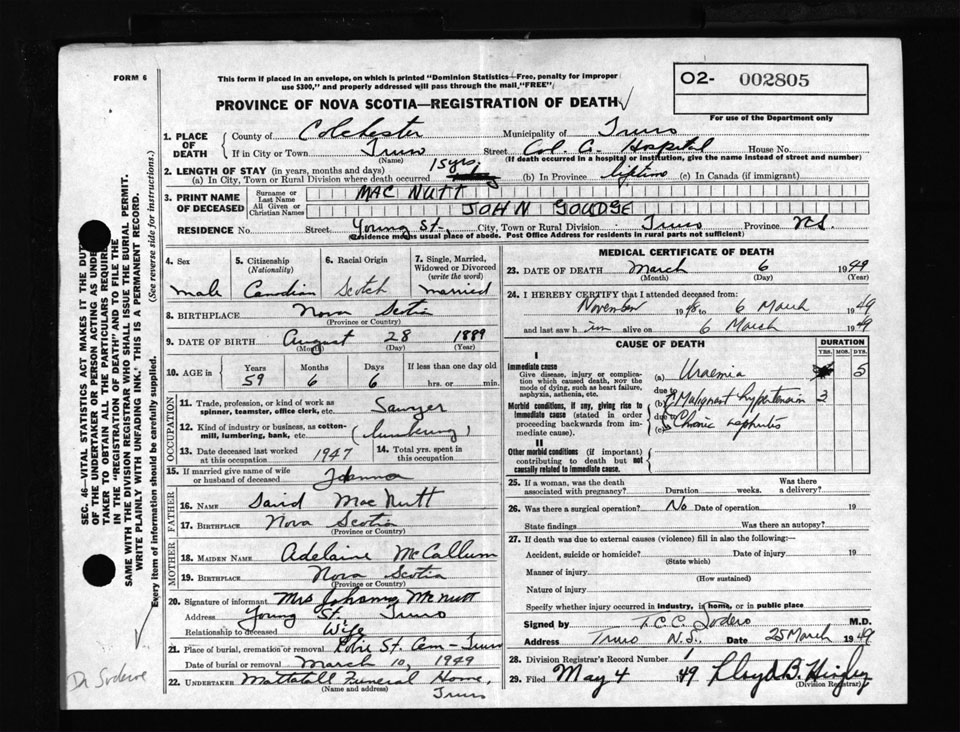 FORM 6
This form if placed in an envelope, on which is printed "Dominion Statistics—Free, penalty for improper
use $300," and properly addressed will pass through the mail, "FREE"
O2- 002805
For use of the Department only
PROVINCE OF NOVA SCOTIA—REGISTRATION OF DEATH
1. PLACE OF DEATH
County of Colchester Municipality of Truro
If in City or Town Truro Street Col. Co. Hospital House No.
(Name) (If death occurred in a hospital or institution, give the name instead of street and number)
2. LENGTH OF STAY (in years, months and days)
(a) In City, Town or Rural Division where death occurred 15 yrs. (b) In Province lifetime (c) In Canada (if immigrant)
3. PRINT NAME OF DECEASED
Surname or Last Name MAC NUTT
All Given or Christian Names JOHN GOUDGE
RESIDENCE No. Street Young St., City, Town or Rural Division Truro Province N.S.
Residence means usual place of abode. Post Office Address for residents in rural parts not sufficient)
4. Sex
male
5. Citizenship (Nationality)
Canadian
6. Racial Origin
Scotch
7. Single, Married, Widowed or Divorced (write the word)
married
8. BIRTHPLACE Nova Scotia
(Province or Country)
9. DATE OF BIRTH August 28 1889
(Month) (Day) (Year)
10. AGE in Years Months Days If less than one day old
59 6 6 hrs. or min.
OCCUPATION
11. Trade, profession, or kind of work as
spinner, teamster, office clerk, etc. Sawyer
12. Kind of industry or business, as cotton-
mill, lumbering, bank, etc. (lumbering)
13. Date deceased last worked at this occupation 1947
14. Total yrs. spent in this occupation
15. If married give name of wife
or husband of deceased
FATHER
16. NAME David MacNutt
17. BIRTHPLACE Nova Scotia
(Province or Country)
MOTHER
18. MAIDEN NAME Adelaine McCallum
19. BIRTHPLACE Nova Scotia
(Province or Country)
20. Signature of informant Mrs Johanna McNutt
Address Young St. Truro
Relationship to deceased Wife
21. Place of burial, cremation or removal Robie St. Cem - Truro
Date of burial or removal March 10, 1949
22. UNDERTAKER Mattatall Funeral Home,
(Name and address) Truro
MEDICAL CERTIFICATE OF DEATH
23. DATE OF DEATH March 6 1949
(Month) (Day) (Year)
24. I HEREBY CERTIFY that I attended deceased from:
November 1948 to 6 March 1949
and last saw him alive on 6 March 1949
CAUSE OF DEATH
DURATION
YRS. MOS. DYS.
I
Immediate cause
Give disease, injury or complica-
tion which caused death, NOT the
mode of dying, such as heart failure,
asphyxia, asthenia, etc.
(a) Uraemia 5
due to
Morbid conditions, if any, giving rise to
immediate cause (stated in order
proceeding backwards from im-
mediate cause).
(b) Malignant hypertension 3
due to
(c) Chronic nephritis
II
Other morbid conditions (if important)
contributing to death but not
causally related to immediate cause.
25. If a woman, was the death
associated with pregnancy? Duration weeks. Was there a delivery?
26. Was there a surgical operation? No Date of operation 19
State findings Was there an autopsy?
27. If death was due to external causes (violence) fill in also the following:—
Accident, suicide or homicide? Date of injury 19
(State which)
Manner of injury
(How sustained)
Nature of injury
Specify whether injury occurred in industry, in home, or in public place
Signed by T.C.C. Sodero M.D.
Address Truro N.S. Date 25 March 1949
28. Division Registrar's Record Number
29. Filed May 4 1949 Lloyd B.
(Division Registrar)
SEC. 46—VITAL STATISTICS ACT MAKES IT THE DUTY
OF THE UNDERTAKER OR PERSON ACTING AS UNDER
TAKER TO OBTAIN ALL THE PARTICULARS REQUIRED
IN THE "REGISTRATION OF DEATH" AND TO FILE THE
SAME WITH THE DIVISION REGISTRAR WHO SHALL ISSUE THE BURIAL PERMIT.
WRITE PLAINLY WITH UNFADING INK. THIS IS A PERMANENT RECORD.
Every item of information should be carefully supplied. (See reverse side for instructions.)
Dr Soderoe